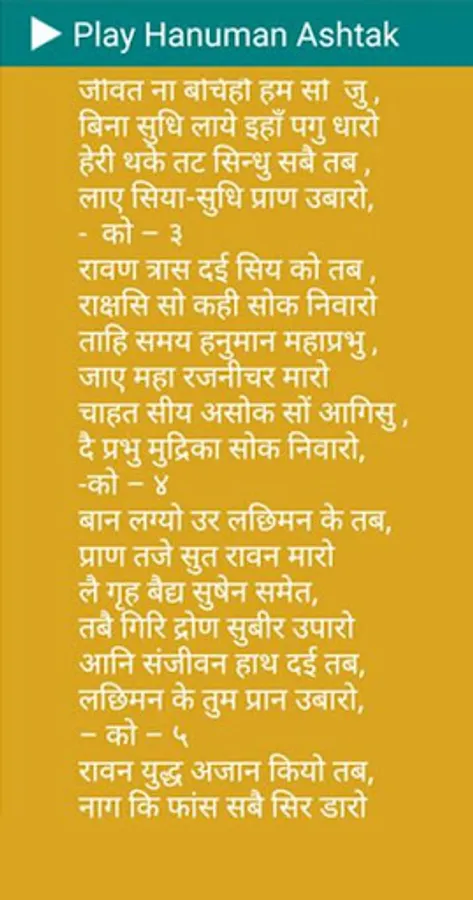 Play Hanuman Ashtak
जीवत ना बचिहौ हम सो जु ,
बिना सुधि लाये इहाँ पगु धारो
हेरी थके तट सिन्धु सबै तब ,
लाए सिया-सुधि प्राण उबारो,
- को – ३
रावण त्रास दई सिय को तब ,
राक्षसि सो कही सोक निवारो
ताहि समय हनुमान महाप्रभु ,
जाए महा रजनीचर मारो
चाहत सीय असोक सों आगिसु ,
दै प्रभु मुद्रिका सोक निवारो,
-को – ४
बान लग्यो उर लछिमन के तब,
प्राण तजे सुत रावन मारो
लै गृह बैद्य सुषेन समेत,
तबै गिरि द्रोण सुबीर उपारो
आनि संजीवन हाथ दई तब,
लछिमन के तुम प्रान उबारो,
– को – ५
रावन युद्ध अजान कियो तब,
नाग कि फांस सबै सिर डारो